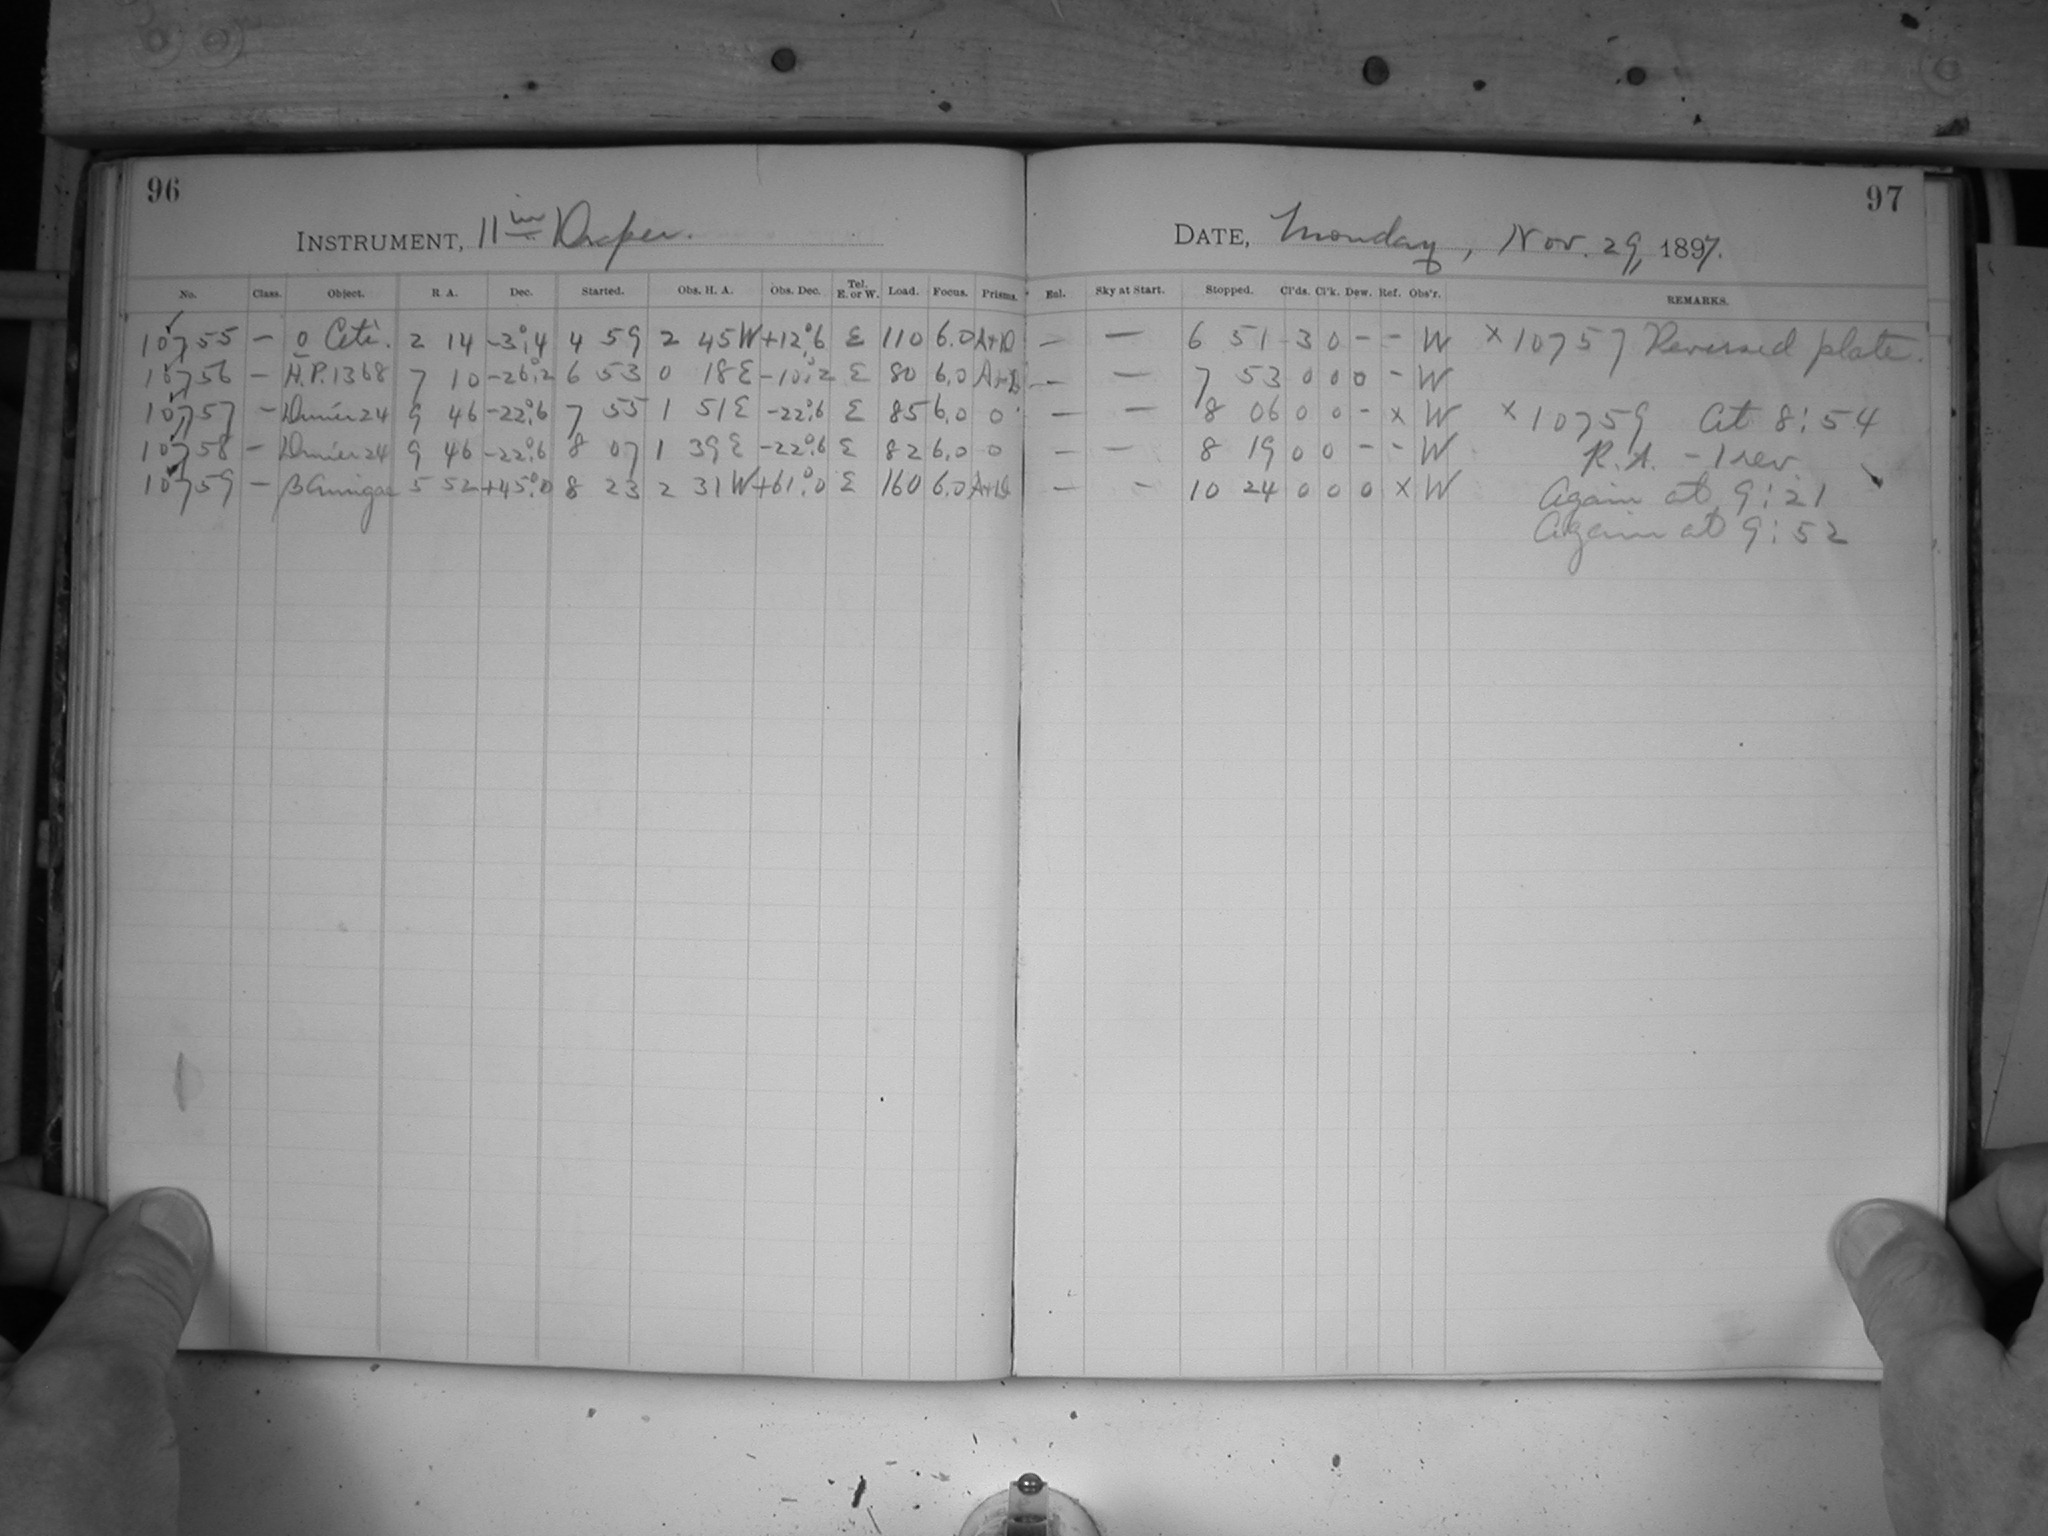 96
INSTRUMENT, 11 in Draper.
No. Class. Object. R. A. Dec. Started. Obs. H. A. Obs. Dec. Tel. E. or W. Load. Focus. Prisms.
10755 — o Ceti. 2 14 -3°.4 4 59 2 45 W +12°.6 E 110 6.0
10756 — H.P. 1368 7 10 -26°.2 6 53 0 18 E -10°.2 E 80 6.0
10757 — 24 9 46 -22°.6 7 55 1 51 E -22°.6 E 85 6.0 0
10758 — 24 9 46 -22°.6 8 07 1 39 E -22°.6 E 82 6.0 0
10759 — β Aurigae 5 52 +45°.0 8 23 2 31 W +61°.0 E 160 6.0
97
DATE, Monday, Nov. 29, 1897.
Enl. Sky at Start. Stopped. Cl'ds. Cl'k. Dew. Ref. Obs'r. REMARKS.
— — 6 51 -3 0 - - W × 10757 Reversed plate.
— — 7 53 0 0 0 - W
— — 8 06 0 0 - × W × 10759 At 8:54
— — 8 19 0 0 - - W R.A. - 1 rev.
— - 10 24 0 0 0 × W Again at 9:21
Again at 9:52